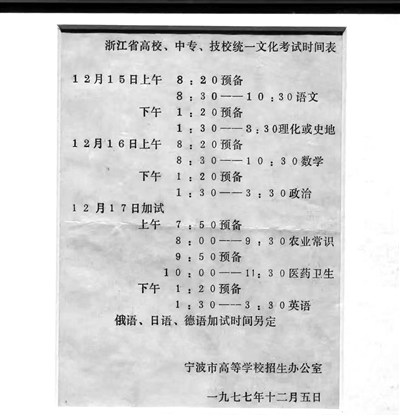 浙江省高校、中专、技校统一文化考试时间表
12月15日上午 8:20预备
8:30——10:30语文
下午 1:20预备
1:30——3:30理化或史地
12月16日上午 8:20预备
8:30——10:30数学
下午 1:20预备
1:30——3:30政治
12月17日加试
上午 7:50预备
8:00——9:30农业常识
9:50预备
10:00——11:30医药卫生
下午 1:20预备
1:30——3:30英语
俄语、日语、德语加试时间另定
宁波市高等学校招生办公室
一九七七年十二月五日